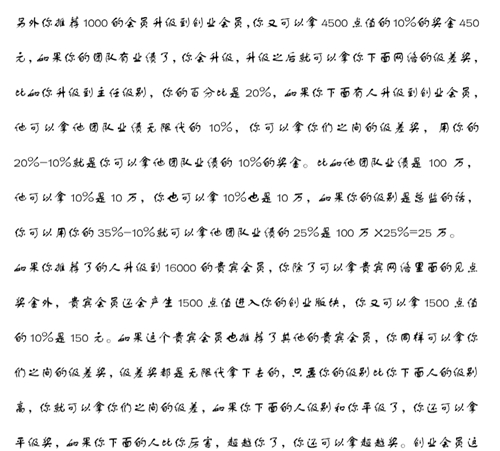 另外你推荐1000的会员升级到创业会员,你又可以拿4500点值的10%的奖金450
元,如果你的团队有业绩了,你会升级,升级之后就可以拿你下面网络的级差奖,
比如你升级到主任级别,你的百分比是20%,如果你下面有人升级到创业会员,
他可以拿他团队业绩无限代的10%,你可以拿你们之间的级差奖,用你的
20%-10%就是你可以拿他团队业绩的10%的奖金。比如他团队业绩是100万,
他可以拿10%是10万,你也可以拿10%也是10万,如果你的级别是总监的话,
你可以用你的35%-10%就可以拿他团队业绩的25%是100万X25%=25万。
如果你推荐了的人升级到16000的贵宾会员,你除了可以拿贵宾网络里面的见点
奖金外,贵宾会员还会产生1500点值进入你的创业版块,你又可以拿1500点值
的10%是150元。如果这个贵宾会员也推荐了其他的贵宾会员,你同样可以拿你
们之间的级差奖,级差奖都是无限代拿下去的,只要你的级别比你下面人的级别
高,你就可以拿你们之间的级差,如果你下面的人级别和你平级了,你还可以拿
平级奖,如果你下面的人比你厉害,超越你了,你还可以拿超越奖。创业会员这